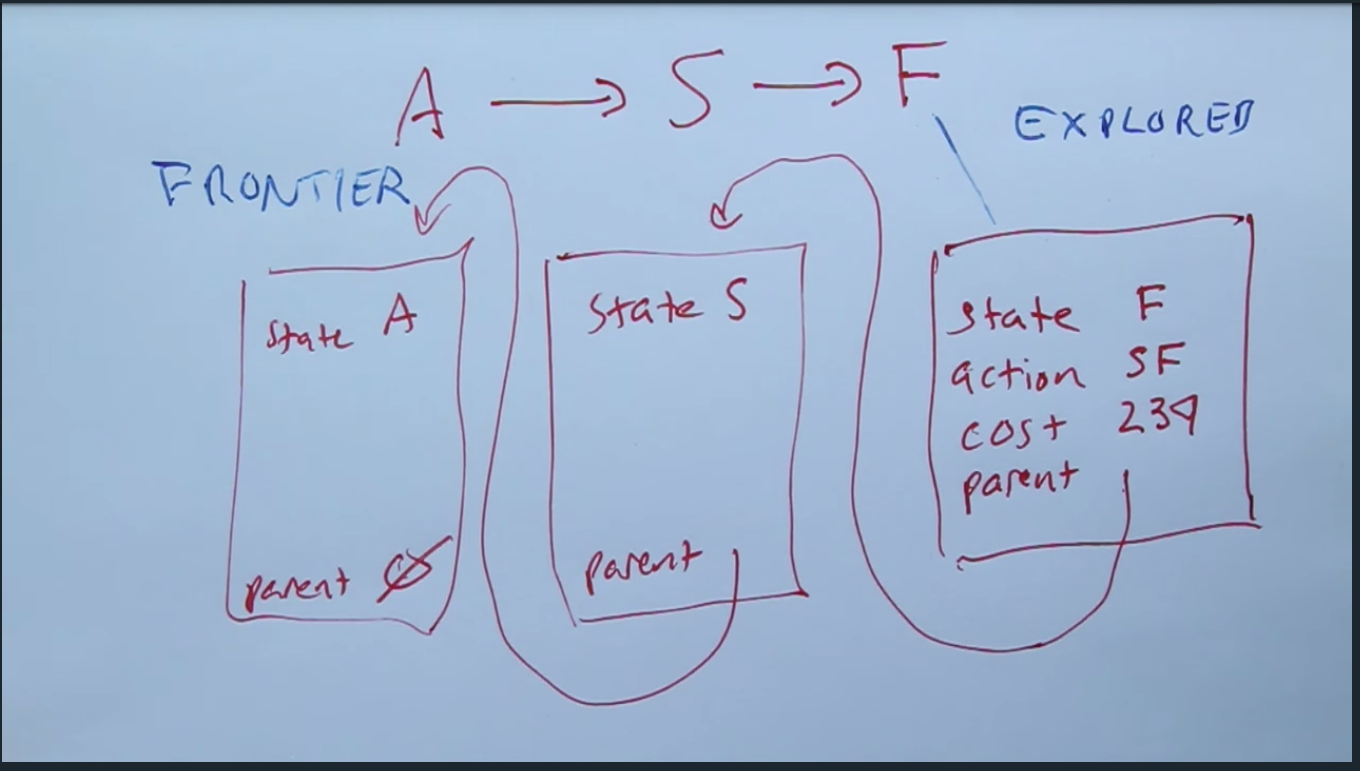 A → S → F
EXPLORED
FRONTIER
State A
parent Ø
State S
parent
State F
action SF
cost 234
parent